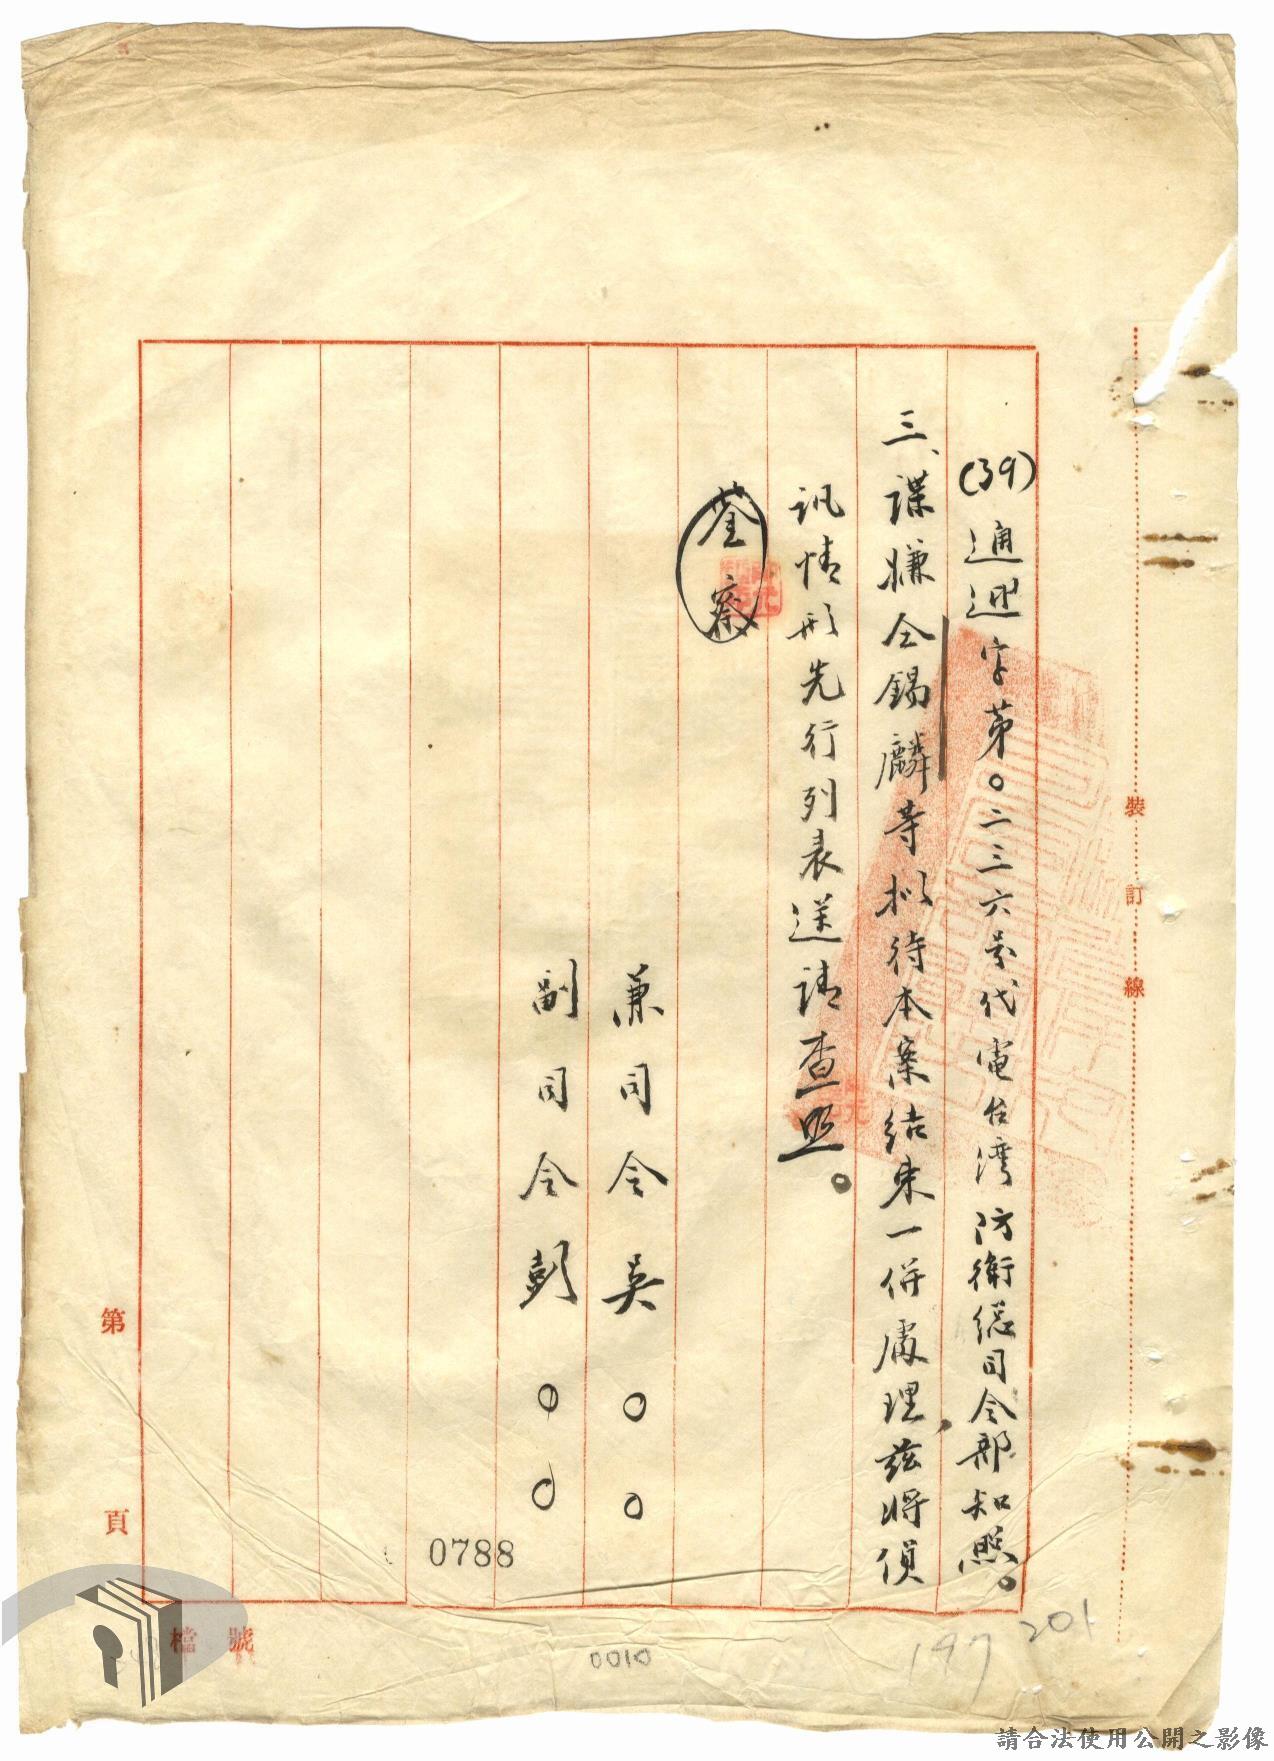 (39)通迎字第○二三六號代電台湾防衛總司令部知照。
三、謀嫌仝錫麟等拟待本案结束一併處理,兹將偵
訊情形先行列表送请查照。
荃察
兼司令吳○○
副司令彭○○
裝訂線
第 頁
檔號
0788
0010
197
201
請合法使用公開之影像